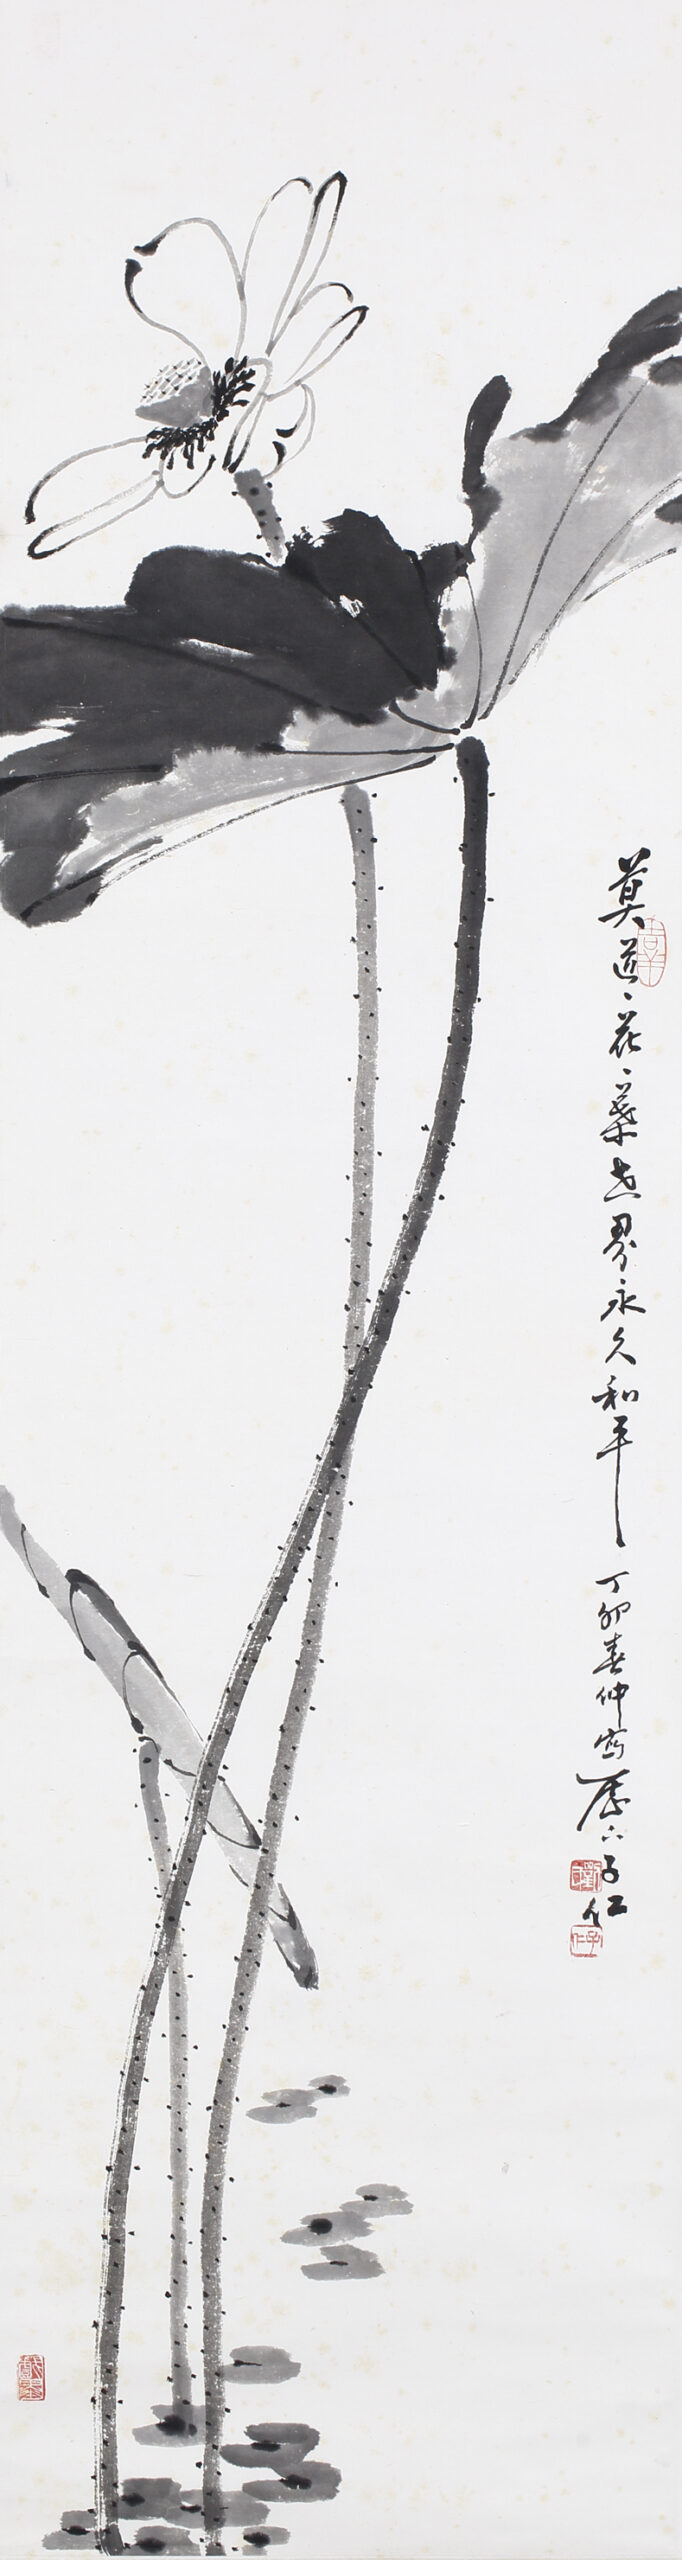 莫道花葉世界永久和平
丁卯春仲寫
子仁
子仁